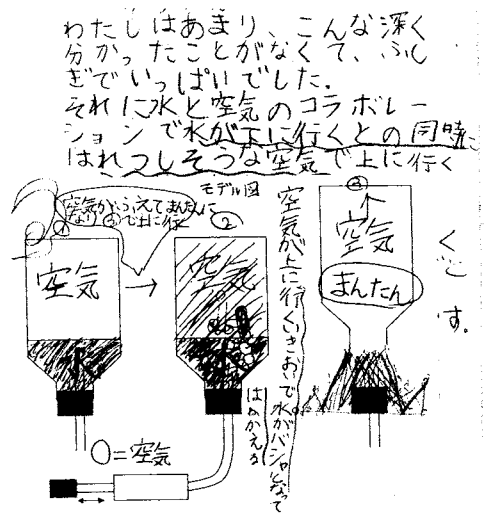 わたしはあまり、こんな深く
分かったことがなくて、ふし
ぎでいっぱいでした。
それに水と空気のコラボレー
ションで水が下に行くとの同時に
はれつしそうな空気で上に行く
モデル図
空気がふえてまんたんに
なり③で上に行く
①
空気
水
②
空気
水
○=空気
空気が上に行くいきおいで水がバシャとなって
はねかえる
③
空気
まんたん
す。